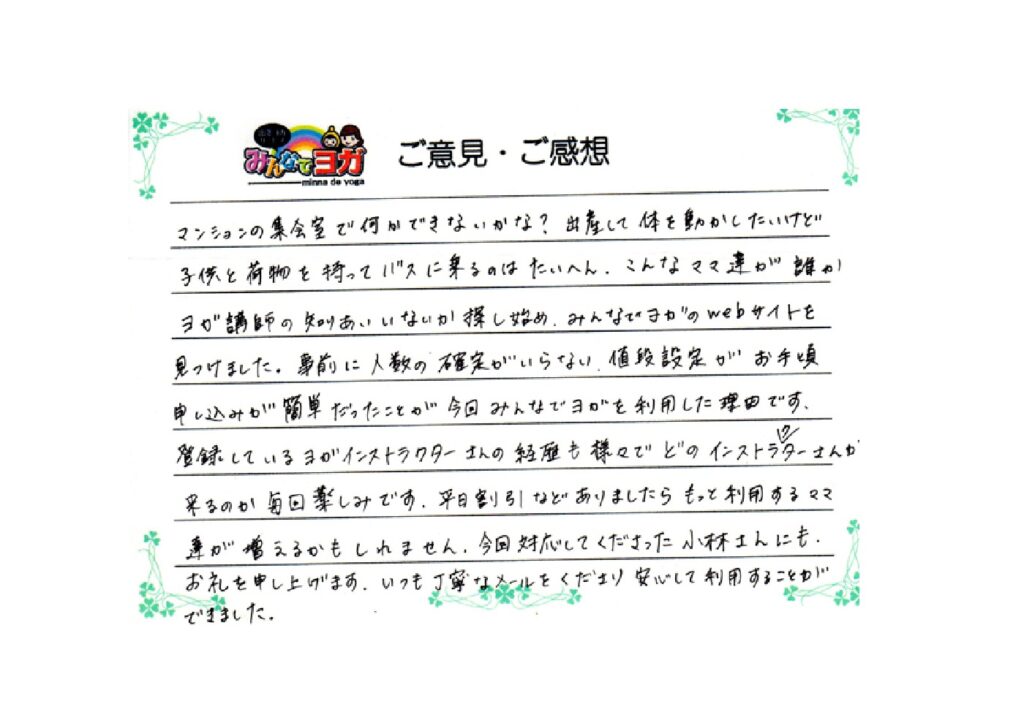 みんなでヨガ
minna de yoga
ご意見・ご感想
マンションの集会室で何かできないかな？ 出産して体を動かしたいけど
子供と荷物を持ってバスに乗るのはたいへん、こんなママ達が誰か
ヨガ講師の知りあいいないか探し始め、みんなでヨガのwebサイトを
見つけました。事前に人数の確定がいらない、値段設定がお手頃
申し込みが簡単だったことが今回みんなでヨガを利用した理由です、
登録しているヨガインストラクターさんの経歴も様々でどのインストラクターさんが
来るのか毎回楽しみです、平日割引などありましたらもっと利用するママ
達が増えるかもしれません、今回対応してくださった小林さんにも、
お礼を申し上げます、いつも丁寧なメールをくださり安心して利用することが
できました。